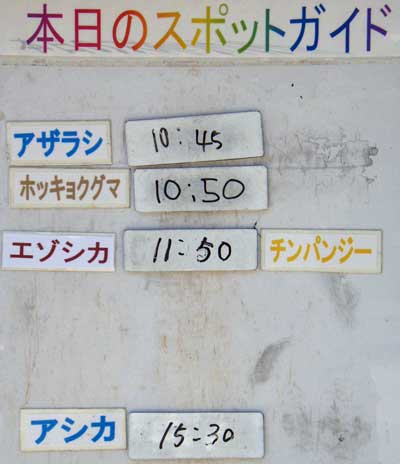 本日のスポットガイド
アザラシ 10:45
ホッキョクグマ 10:50
エゾシカ 11:50 チンパンジー
アシカ 15:30